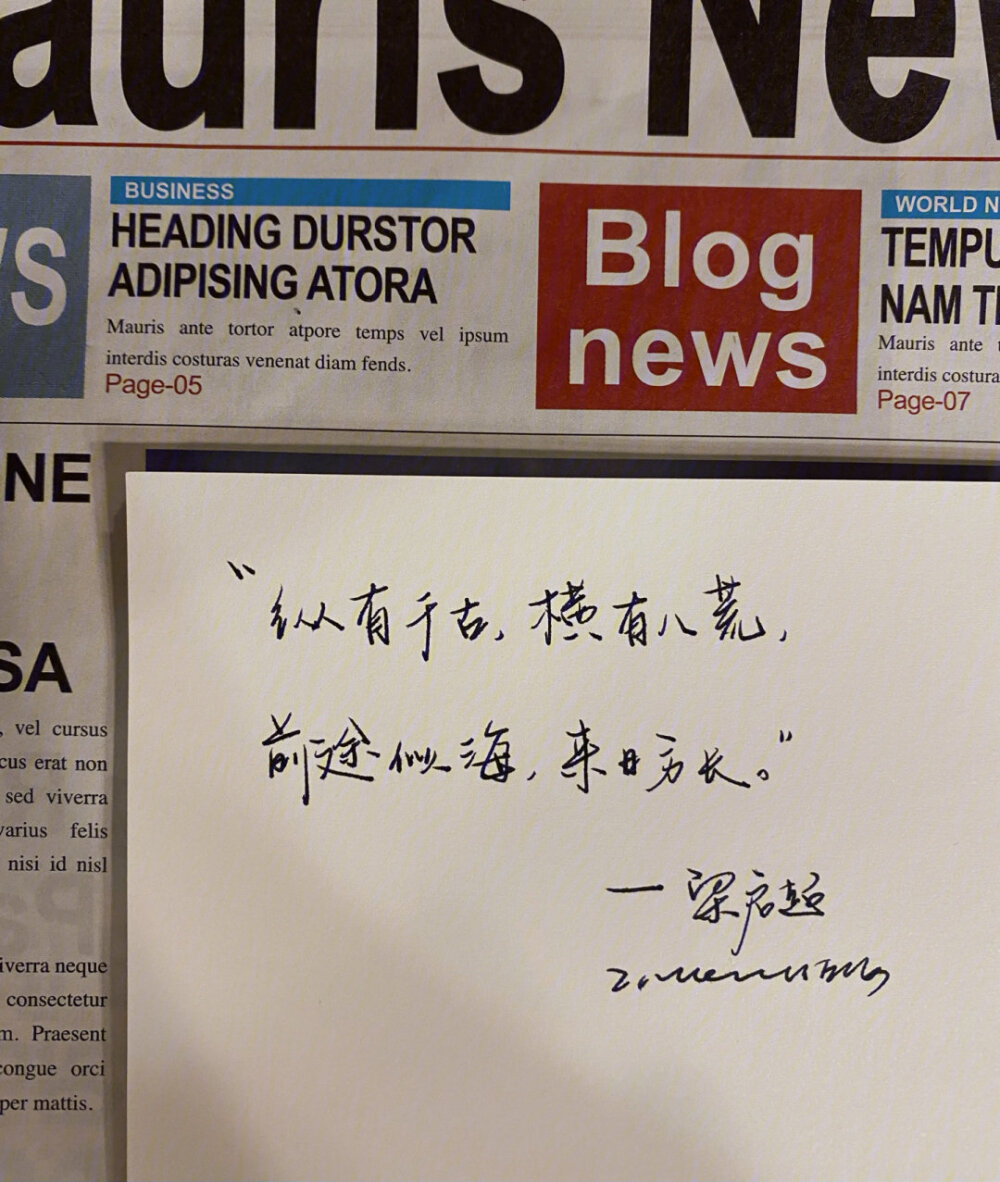 auris New
BUSINESS
HEADING DURSTOR
ADIPISING ATORA
Mauris ante tortor atpore temps vel ipsum
interdis costuras venenat diam fends.
Page-05
Blog
news
WORLD N
TEMPU
NAM T
Mauris ante
interdis costura
Page-07
NE
SA
, vel cursus
cus erat non
sed viverra
varius felis
nisi id nisl
iverra neque
consectetur
m. Praesent
congue orci
per mattis.
“纵有千古，横有八荒，
前途似海，来日方长。”
一梁启超